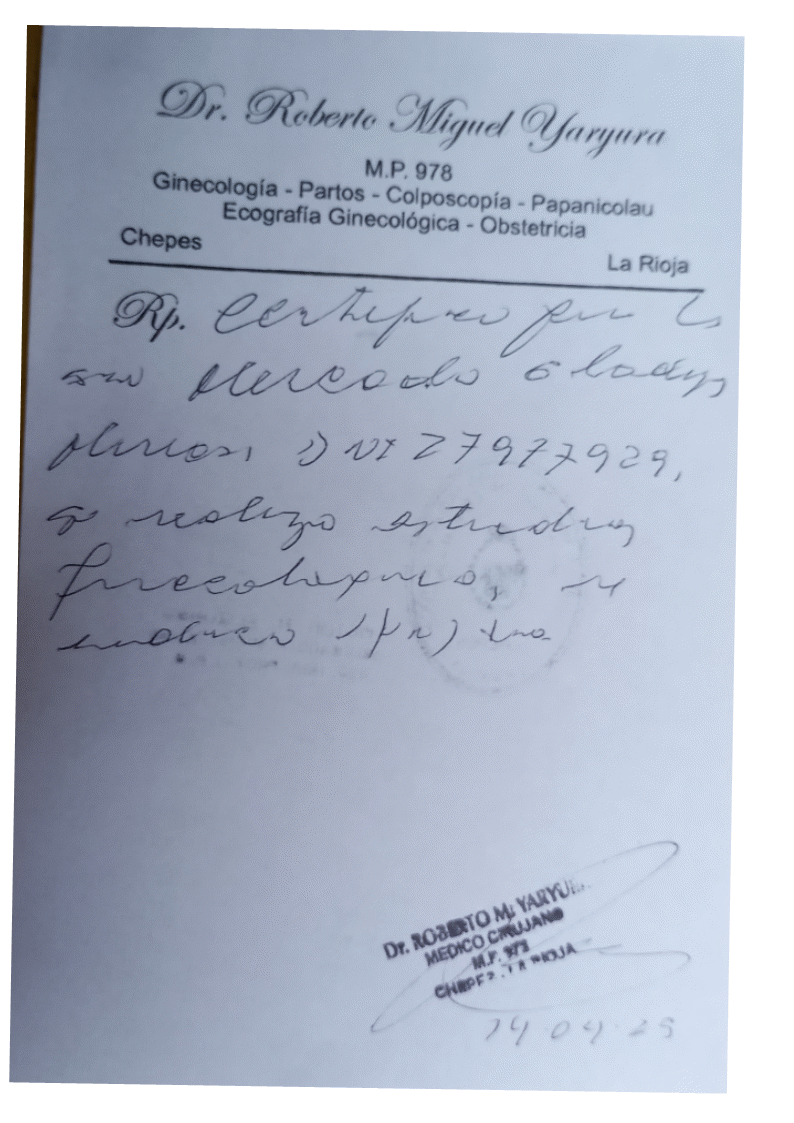 Dr. Roberto Miguel Yaryura
M.P. 978
Ginecología - Partos - Colposcopía - Papanicolau
Ecografía Ginecológica - Obstetricia
Chepes
La Rioja
Rp. Certifico que la
Sra Mercado Gladys
DNI 27977929,
se realizo estudios
ginecologicos, se
indico
Dr. ROBERTO M. YARYU
MEDICO CIRUJANO
M.P. 978
CHEPES - LA RIOJA
14 04 25